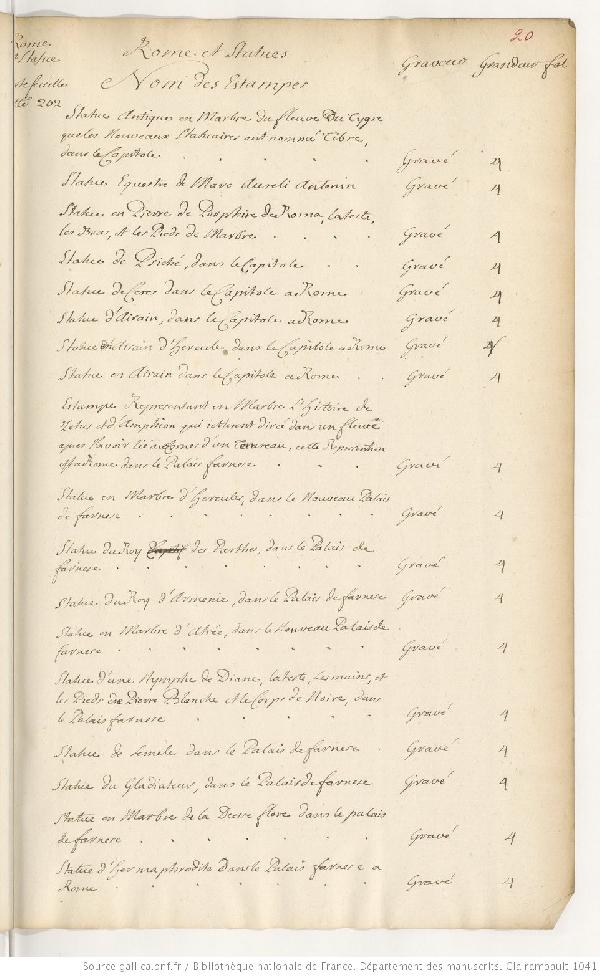 20
Rome
Statue
202
Rome et Statues
Graveur Grandeur fol
Nom des Estampes
Statue Antique en Marbre du fleuve Du Tygre
que les Nouveaux Statuaires ont nommé Tibre,
dans le Capitole Gravé 4
Statue Equestre de Marc Aureli Antonin Gravé 4
Statue en Pierre de Porphire de Roma, la teste,
les Bras, et les Pieds de Marbre Gravé 4
Statue de Psiché, dans le Capitole Gravé 4
Statue de Ceres dans le Capitole a Rome Gravé 4
Statue d'Airain, dans le Capitole a Rome Gravé 4
Statue d'Airain d'Hercule, dans le Capitole a Rome Gravé 4
Statue en Airain dans le Capitole a Rome Gravé 4
Estampe Representant en Marbre l'Histoire de
Zetus et d'Amphion qui dircé dans un fleuve
apres l'avoir cornes d'un Taureau, cette Representation
est a Rome dans le Palais farnese Gravé 4
Statue en Marbre d'Hercules, dans le Nouveau Palais
de farnese Gravé 4
Statue du Roy des Parthes, dans le Palais de
farnese Gravé 4
Statue du Roy d'Armenie, dans le Palais de farnese Gravé 4
Statue en Marbre d'Atrée, dans le Nouveau Palais de
farnese Gravé 4
Statue d'une Nymphe de Diane, la teste, les mains, et
les Pieds de Pierre Blanche et le Corps de Noire, dans
le Palais farnese Gravé 4
Statue de Semele dans le Palais de farnese Gravé 4
Statue du Gladiateur, dans le Palais de farnese Gravé 4
Statue en Marbre de la Deesse flore dans le palais
de farnese Gravé 4
Statue d'Hermaphrodite Dans le Palais farnese a
Rome Gravé 4
Source gallica.bnf.fr / Bibliothèque nationale de France. Département des manuscrits. Clairambault 1041